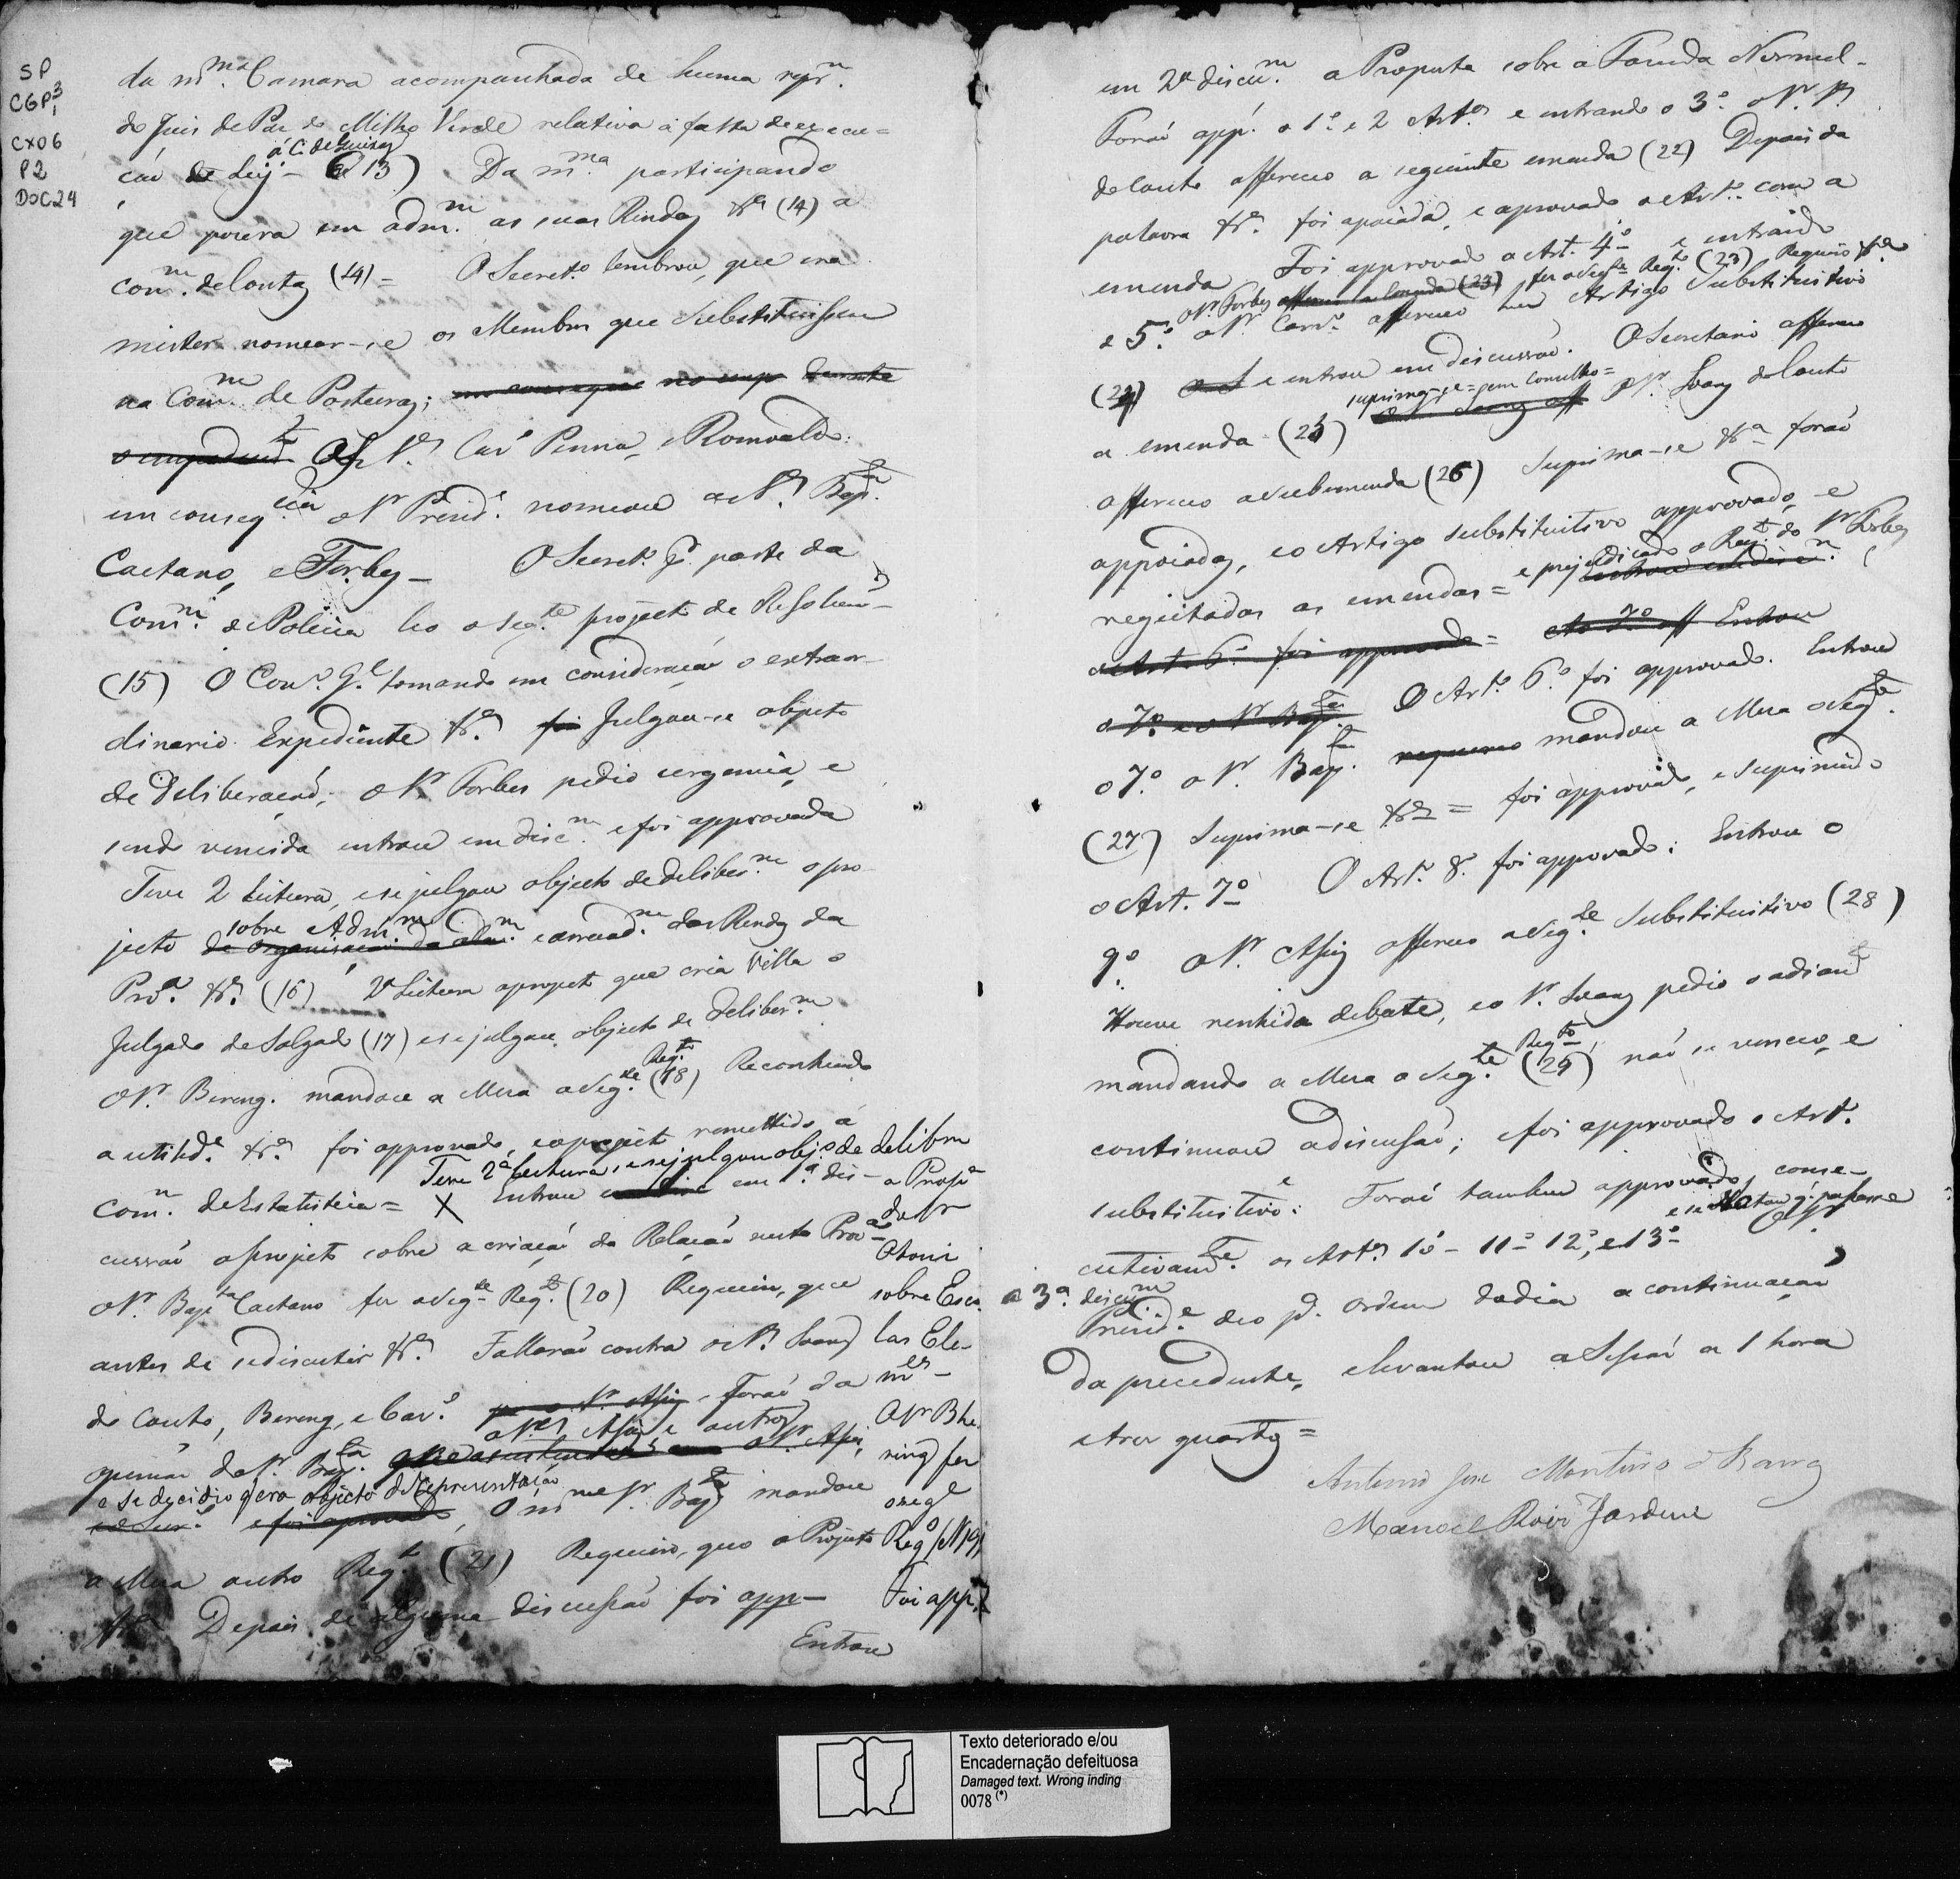 SP
CGP 3
1
CX06
P2
DOC24
da m.ma Camara acompanhada de huma repr.m
do Juis de Paz do Milho Verde relativa á falta de execu=
cáo de Leij - á C. de Guizaz (13) Da m.ma participando
que pozera em adm.m as suas Rendas &a (14) a
com.m de Contas (14) = O Secret.o lembrou, que era
mister nomear-se os Membros que substituissem
na Com.m de Posturas; em conseque no imp durante
o impedim.to Os Sr.es Car.o Penna, e Romualdo:
em conseq.cia o Sr Presid.e nomeou aos Sr.es Bap.ta
Caetano, e Forbes - O Secret.o p.r parte da
Com.m de Policia leo o seg.te projecto de Resoluc.m
(15) O Con.o G.l tomando em consideração o extraor-
dinario Expediente &a foi Julgou-se objecto
de Deliberacaó; o Sr Forbes pedio urgencia, e
sendo vencida entrou em disc.m e foi approvada
Teve 2 Leitura, e se julgou objecto de deliber.m o pro-
jecto de organisacaó da adm.m sobre Adm.m e arrecad.m das Rendas da
Prov.a &a (16) 2a Leitura o projecto que cria Villa o
Julgado de Salgado (17) e se julgou objecto de Deliber.m
O Sr. Bereng. mandou a Mesa o seg.te Req.to (18) Reconhecendo
a utilid.e &a foi approvado, e o projecto remettido á
Com.m de Estatistica = X Entrou em disc em 1.a dis-
Teve 2a Lectura, e se julgou obj.o de delibm
a Prop.a
do Sr
Otoni
sobre Esco.
las Ele-
m.es -
O Sr Bhe.
ring fez
o seg.e
Reg.o (N 19)
Foi app.
cussaó o projecto sobre a criaçaó da Relacaó nesta Prov.a
O Sr. Bap.ta Caetano fez o seg.te Req.to (20) Requeiro, que
antes de se discutir &a Fallaraó contra os Sr.es Soares
do Couto, Bereng, e Car.o Foraó da
opiniaó do Sr. Bap.ta os Sr.es Assiz e outros
e se decidio q' era objecto de Representação
e foi approvado, O m.mo Sr. Bap.ta mandou
a Mesa outro Req.to (21) Requeiro, que o Projecto
&a Depois de alguma discussaó foi app-
Entrou
em 2a discu.m a Proposta sobre a Fazenda Normal.
Foraó app. o 1.o e 2 Art.os e entrando o 3.o o Sr. S.es
do Couto offereceo a seguinte emenda (22) Depois da
palavra &a foi apoiada, e aprovado o Art.o com a
emenda Foi approvado o Art. 4.o e entrando
o Sr. Forbes offereceo a Emenda (23) fez o seg.te Req.to (23) Requeiro &a
o 5.o o Sr. Carv.o offereceo hum Artigo Substituitivo
(24) e entrou em discussaó. O Secretario offereceo
a emenda - (25) suprima-se = sem Conselho = O Sr. Soares do Couto
offereceo a subemenda (26) Suprima-se &a foraó
appoiadas, e o Artigo substituitivo approvado, e
regeitadas as emendas = e prejudicado o Req.to do Sr Forbes
Entrou em disc.m
o Art. 6.o foi approvado = Ao 7.o off Entrou
o 7.o e o Sr Bap.ta O Art.o 6.o foi approvado. Entrou
o 7.o o Sr. Bap.ta requereo mandou a Mesa o seg.te
(27) Suprima-se &a = foi approvado, e suprimido
o Art. 7.o O Art. 8.o foi approvado: Entrou o
9.o O Sr. Assiz offereceo o seg.te Substituitivo (28)
Houve renhido debate, e o Sr. Soares pedio o adiam.to
mandando a Mesa o seg.te Req.to (29) naó se venceo, e
continuou a discussaó; e foi approvado o Art.
substituitivo: Foraó tambem approvados, conse-
cutivam.te os Art.os 10.o - 11.o 12.o, e 13.o e se votou q' passasse
a 3.a discu.m O Sr
Presid.e deo p.a ordem do dia a continuaçaó
da precedente, e levantou a Sessaó a 1 hora
e tres quartos =
Antonio Jose Monteiro de Barros
Manoel Roiz Jardim
Texto deteriorado e/ou
Encadernação defeituosa
Damaged text. Wrong inding
0078 (*)